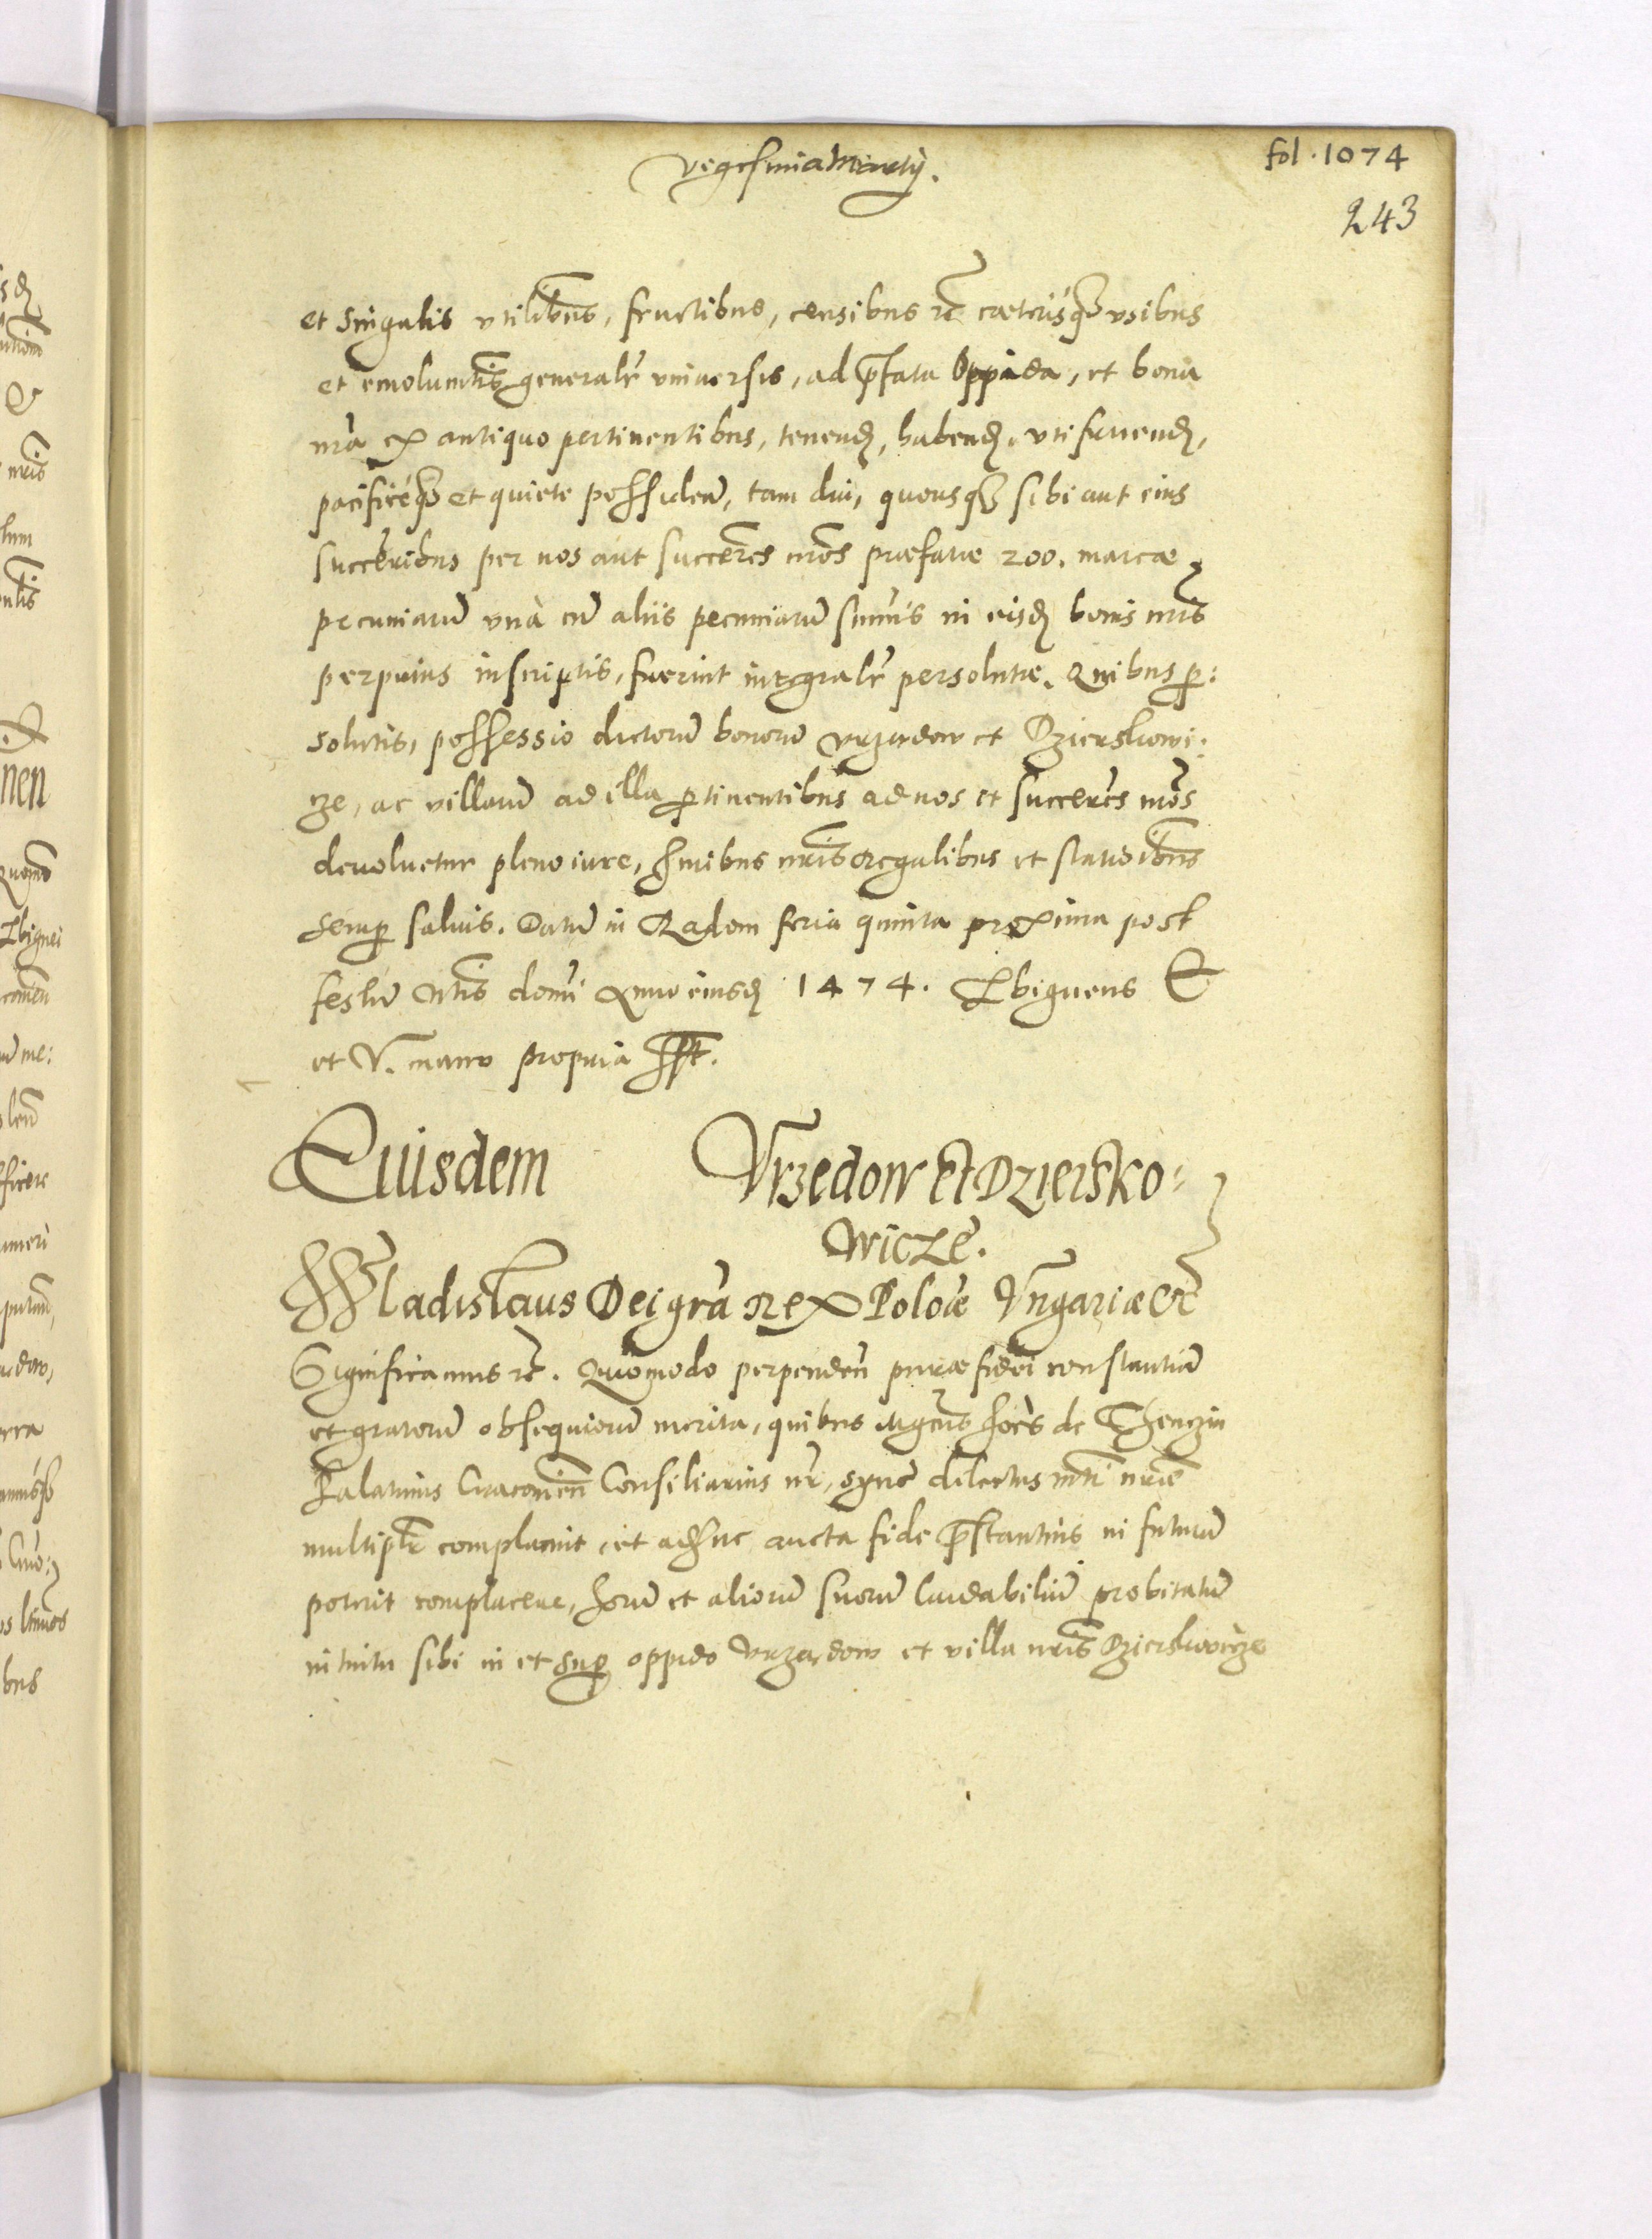 vigesima Martij.
fol. 1074
243
et singulis vtilibus, fructibus, censibus etc caeterisq3 vsibus
et emolumtis generalr vniuersis, ad pfata Oppida, et bona
nra ex antiquo pertinentibus, tenend, habend, vtifruend,
pacificeq3 et quiete possidend, tam diu, quousq3 sibi aut eius
succeribus per nos aut succeres nros praefatae 200. marcae
pecuniaru vnà cu aliis pecuniaru sumis in eisd bonis nris
perprius inscriptis, fuerint integralr persolutae. Quibus per:
solutis, possessio dictoru bonoru Vrzendow et Dzierskowi:
ze, ac villaru ad illa ptinentibus ad nos et succeres nros
deuoluetur pleno iure, Juribus nris regalibus et stationibus
semp saluis. Datu in Radom feria quinta proxima post
festu Ntis domi Anno eiusd 1474. Zbigneus E
et V. manu propria sspt.
Eiusdem Vrzedow et Dziersko=
wicze.
Wladislaus Dei gra Rex Poloe Vngariae etc
Significamus etc. Quomodo perpenden purae fidei constantia
et gratoru obsequioru merita, quibus Mgcus Joes de Thenczin
Palatinus Cracouien Consiliarius nr, syncr dilectus mti nrae
multiplr complacuit, et adhuc aucta fide pstantius in futuru
poterit complacere, horu et alioru suoru laudabiliu probitatu
intuitu sibi in et sup oppido Vrzendow et villa nris Dzierskowicze